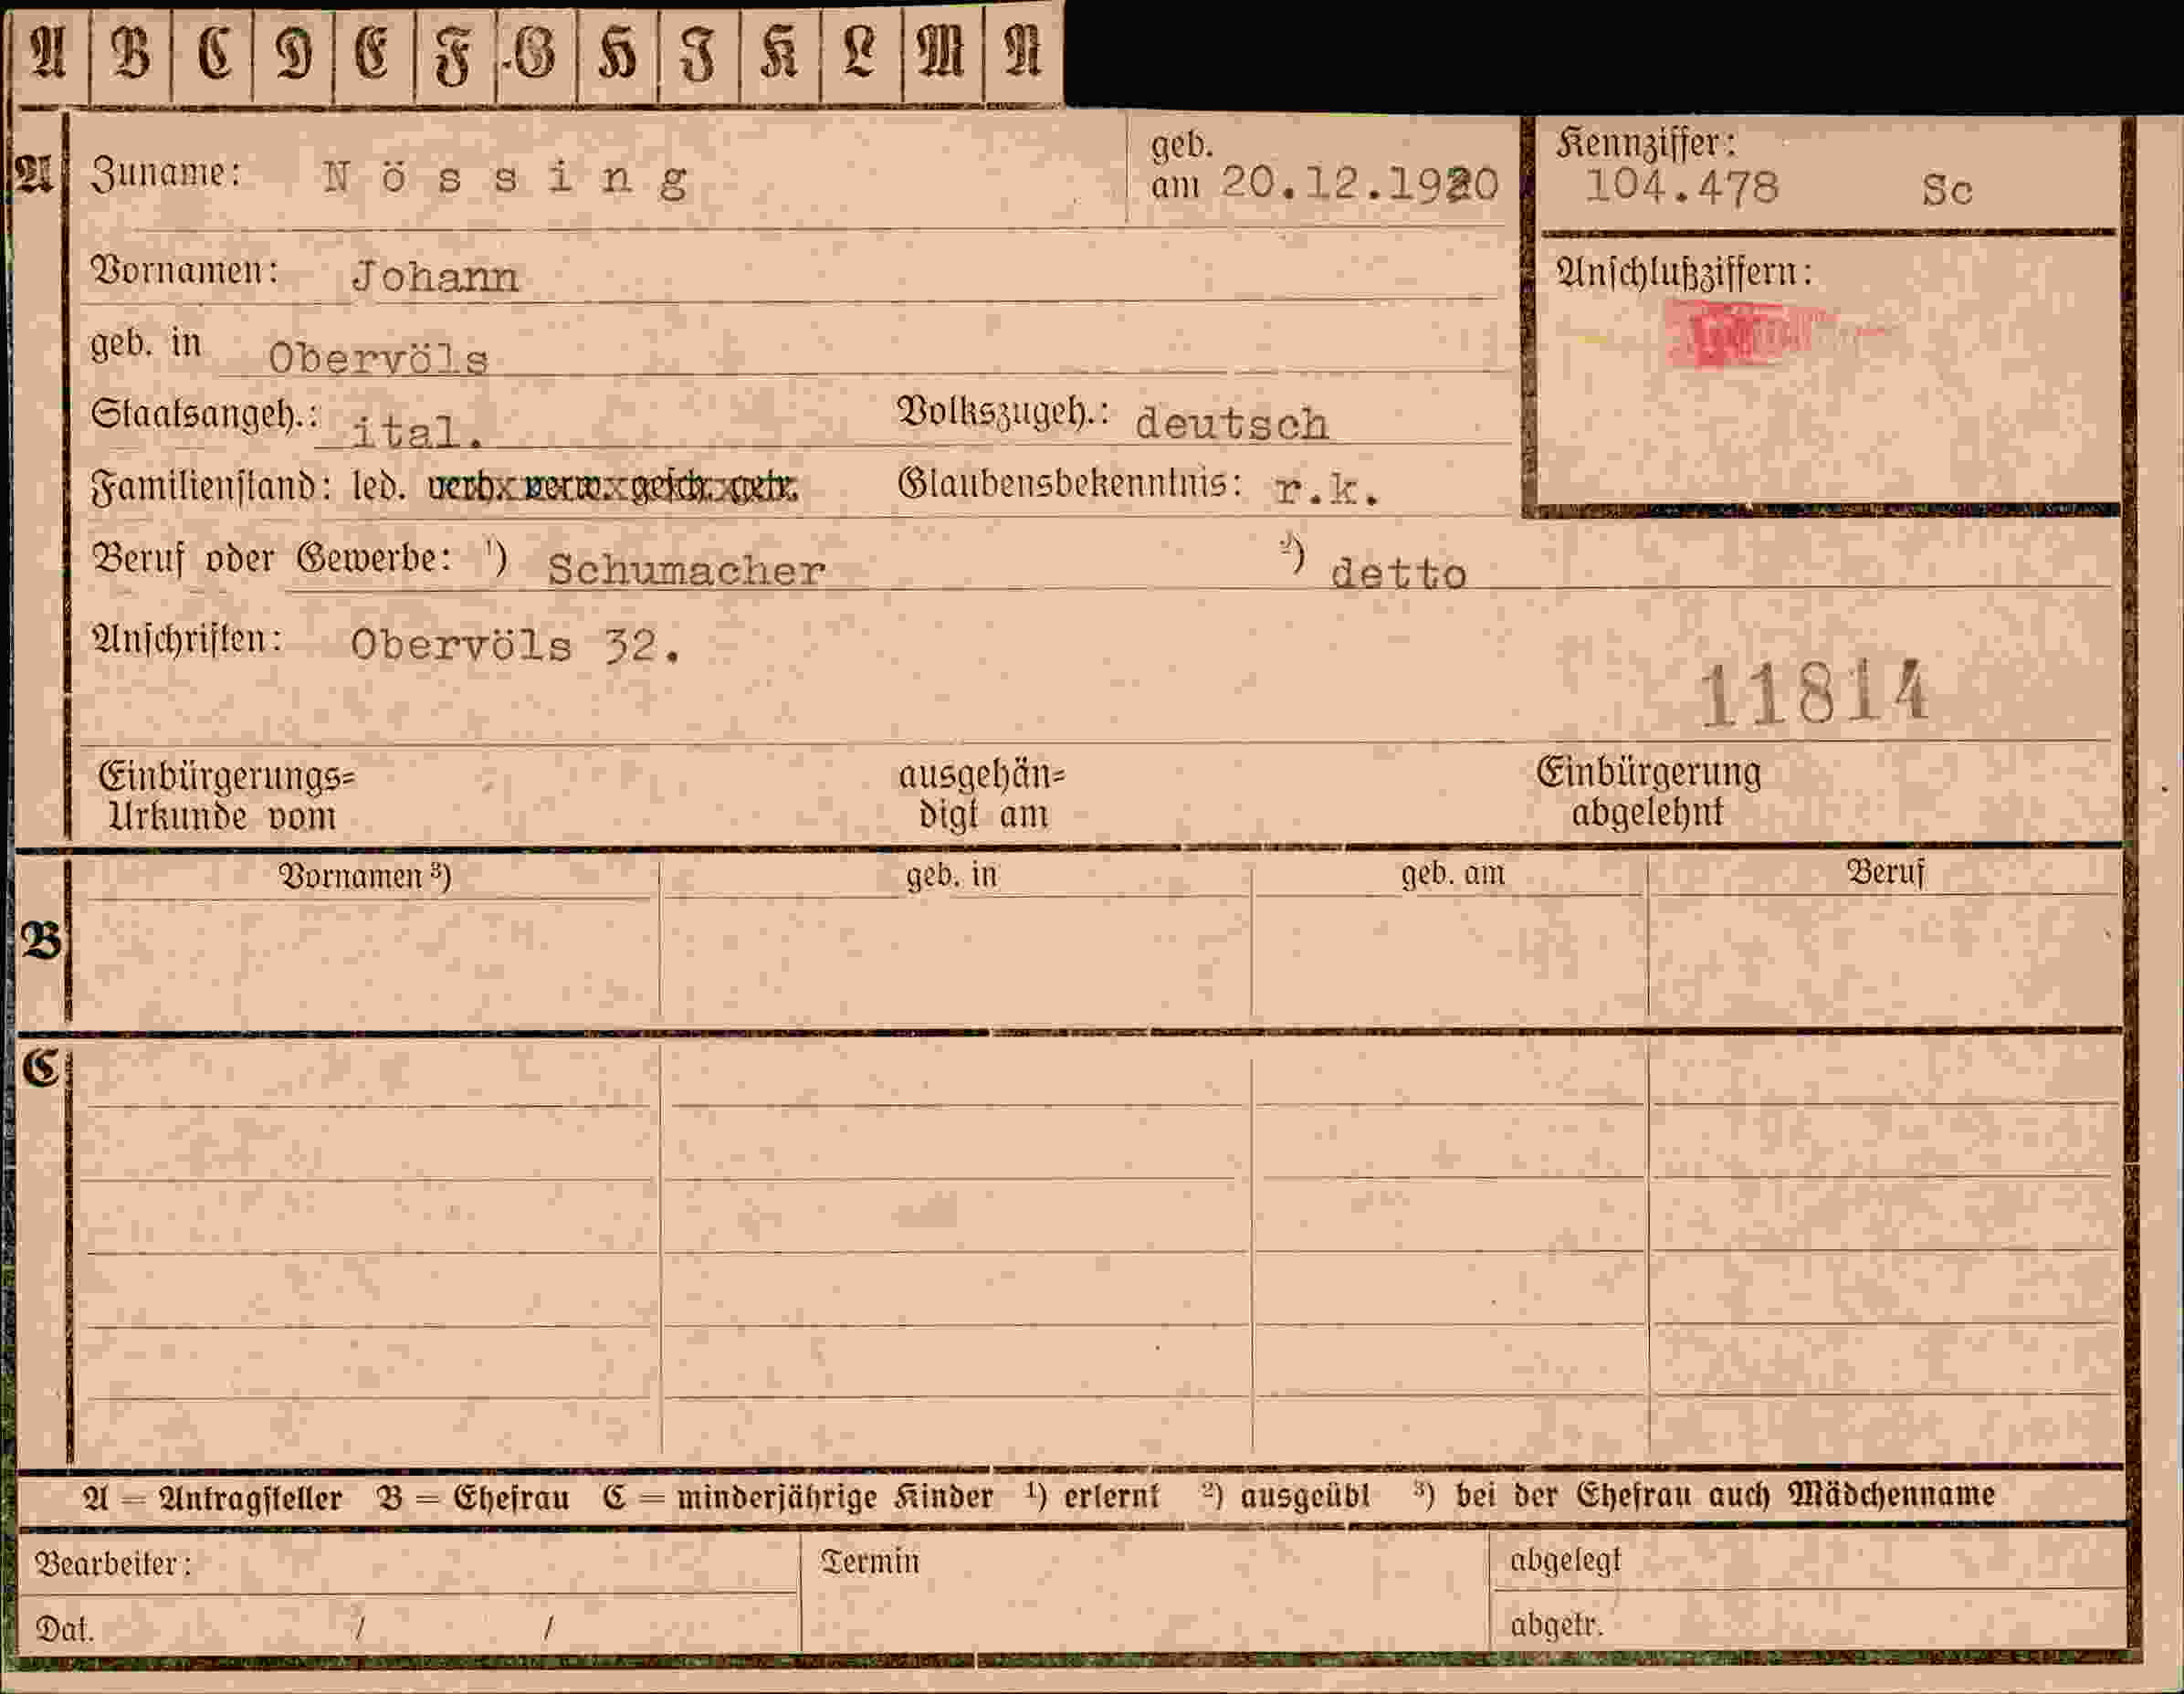 A B C D E F G H I K L M N
A Zuname: Nössing geb. am 20.12.1920 Kennziffer: 104.478 Sc
Vornamen: Johann Anschlußziffern:
geb. in Obervöls
Staatsangeh.: ital. Volkszugeh.: deutsch
Familienstand: led. verh. verw. gesch. getr. Glaubensbekenntnis: r.k.
Beruf oder Gewerbe: ¹) Schumacher ²) detto
Anschriften: Obervöls 32.
11814
Einbürgerungs= ausgehän= Einbürgerung
Urkunde vom digt am abgelehnt
Vornamen ³) geb. in geb. am Beruf
B
C
A = Antragsteller B = Ehefrau C = minderjährige Kinder ¹) erlernt ²) ausgeübt ³) bei der Ehefrau auch Mädchenname
Bearbeiter: Termin abgelegt
Dat. / / abgetr.